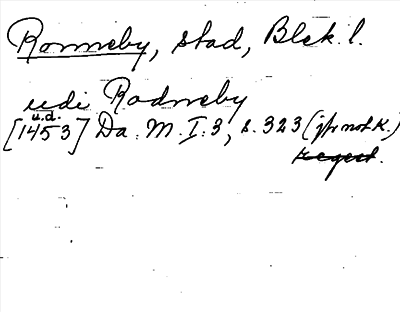 Ronneby, stad, Blek. l.
udi Rodneby
u.d.
[1453] Da. M. I: 3, s. 323 (jfr not K.)
regest.